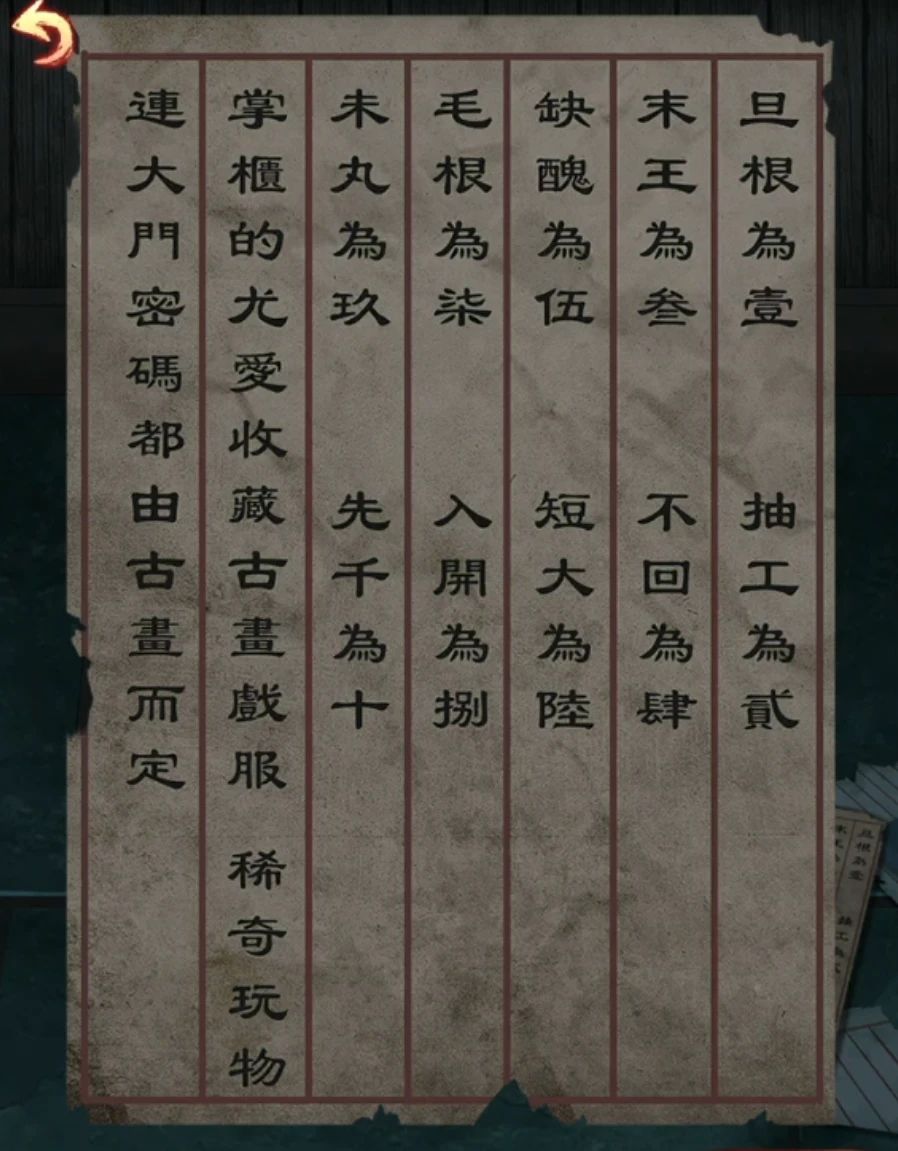 旦根為壹 抽工為貳
末王為叁 不回為肆
缺醜為伍 短大為陸
毛根為柒 入開為捌
未丸為玖 先千為十
掌櫃的尤愛收藏古畫戲服 稀奇玩物
連大門密碼都由古畫而定
旦根為壹
抽工